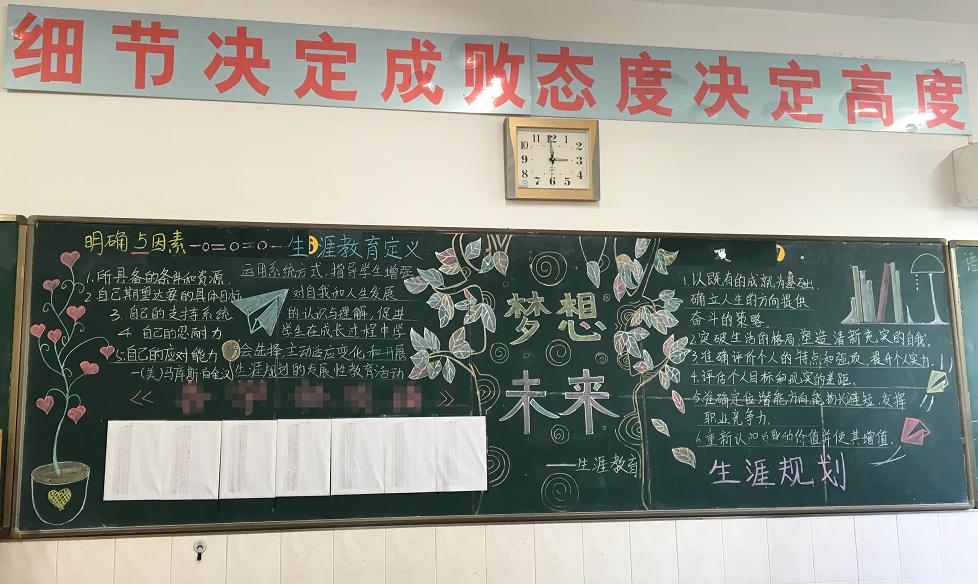 细节决定成败态度决定高度
明确与因素
1.所具备的条件和资源
2.自己期望达要的具体目标
3.自己的支持系统
4.自己的忍耐力
5.自己的应对能力
—(美)马席斯·白金汉
生涯教育定义
运用系统方式,指导学生增强
对自我和人生发展
的认识与理解,促进
学生在成长过程中学
会选择,主动适应变化和开展
生涯规划的发展性教育活动
梦想
未来
——生涯教育
1.以既有的成就为基础.
确立人生的方向提供
奋斗的策略.
2.突破生活的格局,塑造清新充实的自我.
3.准确评价个人的特点和能项,提升个人实力
4.评估个人目标和现实的差距.
5.准确定位潜能方向,能扬长避短,发挥
职业竞争力.
6.重新认知自身的价值并使其增值.
生涯规划
11 12 1
10 2
9 3
8 4
7 6 5